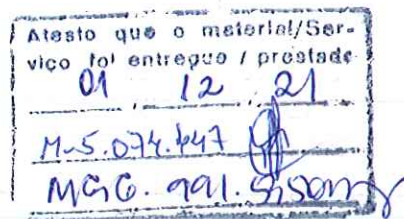 Atesto que o material/Ser-
viço foi entregue / prestado
01 12 21
M-5.074.
MG6. 991.